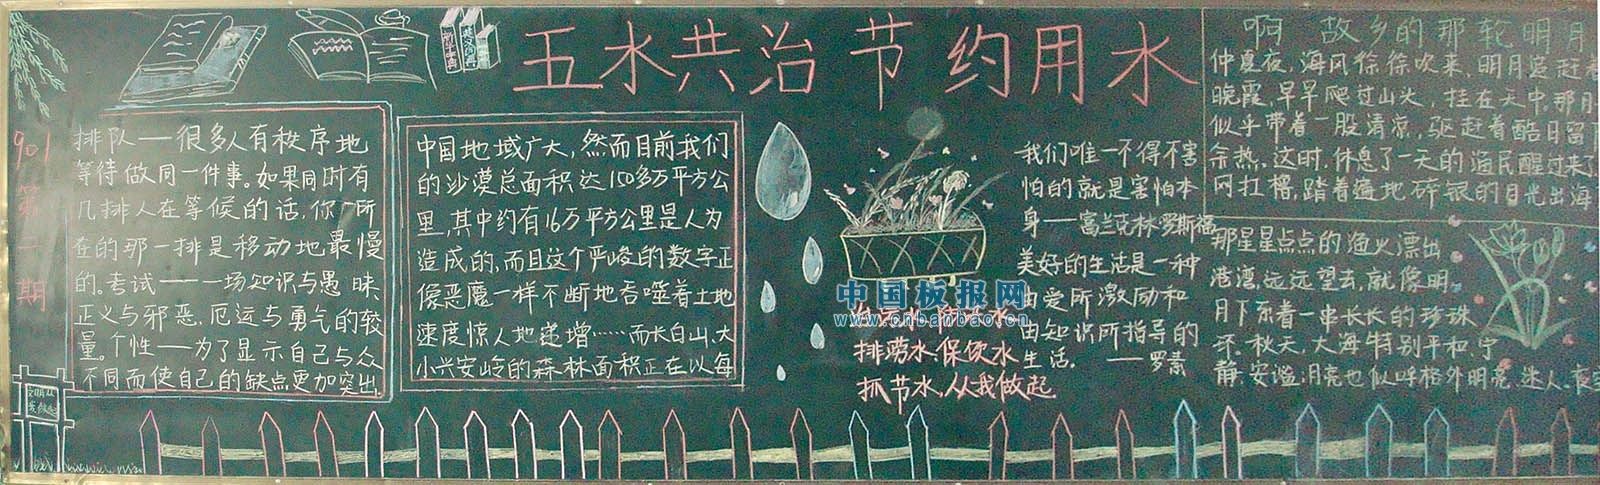 五水共治 节约用水
901第一期
排队——很多人有秩序地
等待做同一件事。如果同时有
几排人在等候的话,你所
在的那一排是移动地最慢
的。考试——一场知识与愚昧,
正义与邪恶,厄运与勇气的较
量。个性——为了显示自己与众
不同而使自己的缺点更加突出.
中国地域广大,然而目前我们
的沙漠总面积达150多万平方公
里,其中约有16万平方公里是人为
造成的,而且这个严峻的数字正
像恶魔一样不断地吞噬着土地
速度惊人地递增……而长白山、大
小兴安岭的森林面积正在以每
中国板报网
www.cnbanbao.cn
排涝水、保饮水
抓节水,从我做起
我们唯一不得不害
怕的就是害怕本
身——富兰克林·罗斯福
美好的生活是一种
由爱所激励和
由知识所指导的
生活.——罗素
啊 故乡的那轮明月
仲夏夜,海风徐徐吹来,明月追赶着
晚霞,早早爬过山头,挂在天中,那月
似乎带着一股清凉,驱赶着酷日留下
余热。这时,休息了一天的渔民醒过来了
网扛橹,踏着遍地碎银的月光出海
那星星点点的渔火漂出
港湾,远远望去,就像明
月下系着一串长长的珍珠
环.秋天,大海特别平和、宁
静,安谧,月亮也似乎格外明亮、迷人。夜